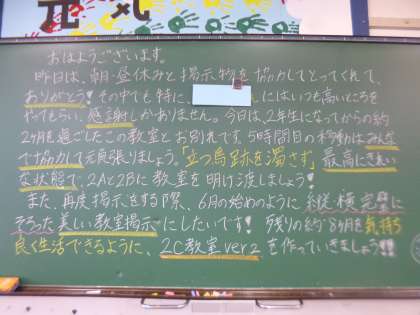 元気
おはようございます。
昨日は、朝・昼休みと掲示物を協力してとってくれて、
ありがとう！その中でも特に、にはいつも高いところを
やってもらい、感謝しかありません。今日は、2年生になってからの約
2ヶ月を過ごしたこの教室とお別れです。5時間目の移動はみんな
で協力して元気に頑張りましょう。「立つ鳥跡を濁さず」最高にきれい
な状態で、2Aと2Bに教室を明け渡しましょう！
また、再度掲示をする際、6月の始めのように縦横完璧に
そろった美しい教室掲示にしたいです！残りの約8ヶ月を気持ち
良く生活できるように、2C教室ver2を作っていきましょう！！